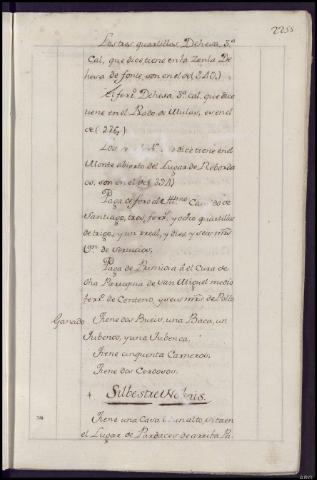 2255
Las tres quartillas Dehesa, 3.ª
Cal, que dice tiene en la
hesa de fonte, son en el de (340.)
El ferr.º Dehesa 3.ª cal. que dice
tiene en el Prado de Mulas, es en el
de (226.)
Los dice tiene en el
Monte abierto del Lugar de Reborda
os, son en el de (324)
Paga de foro al
Santiago, tres, ferr.s y ocho quartillos
de trigo, y un real, y diez y seis mrs
de servicios.
Paga de Primicia al Cura de
dha Parroquia de San Miguel medio
ferr.º de Centeno, y seis mrs de
Ganado Tiene dos Bueis, una Baca, un
Jubenco, y una Jubenca.
Tiene cinquenta Carneros.
Tiene dos Cerdosos.
+ Silbestre
Tiene una Casa alto, sita en
el Lugar de de arriba Pa.